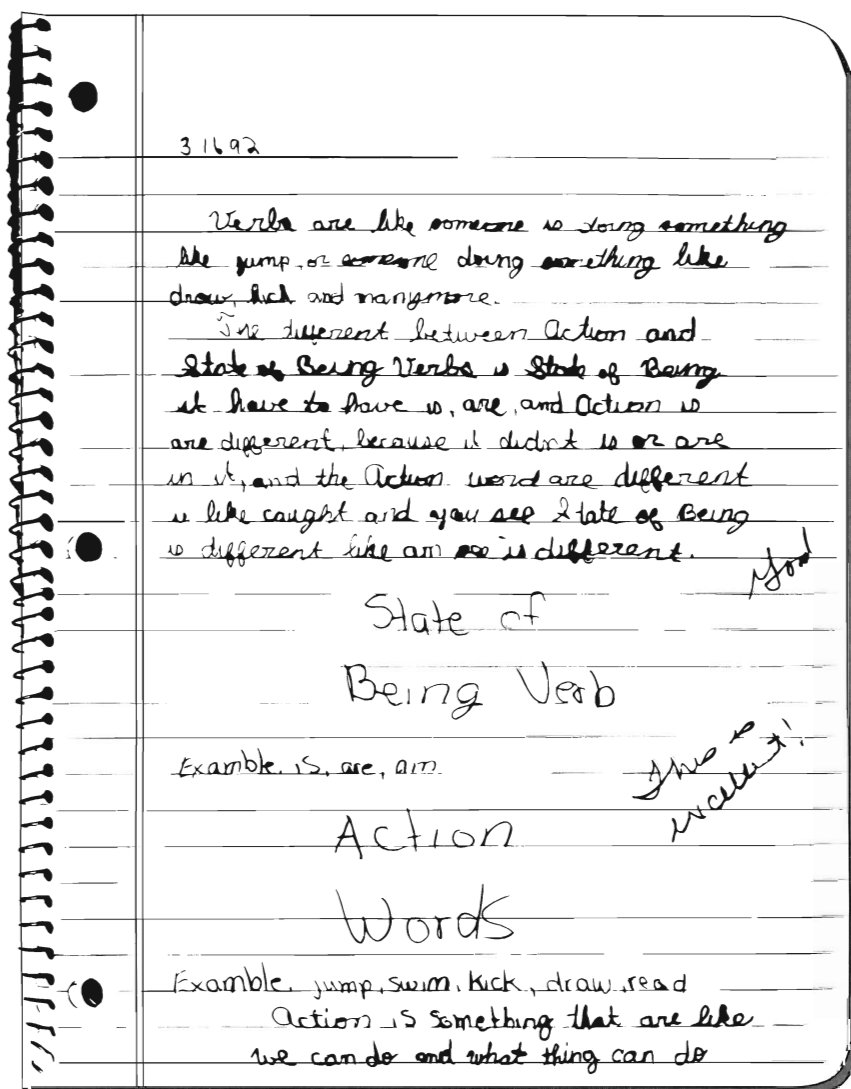 3 16 92
Verbs are like someone is doing something
like jump, or someone doing something like
draw, kick and many more.
The different between Action and
State of Being Verbs is State of Being
it have to have is, are, and Action is
are different, because it didn't is or are
in it, and the Action word are different
is like caught and you see State of Being
is different like am is different.
State of
Being Verb
This is
excellent!
Examble. is, are, am
Action
Words
Examble. jump, swim, kick, draw, read
Action is something that are like
we can do and what thing can do